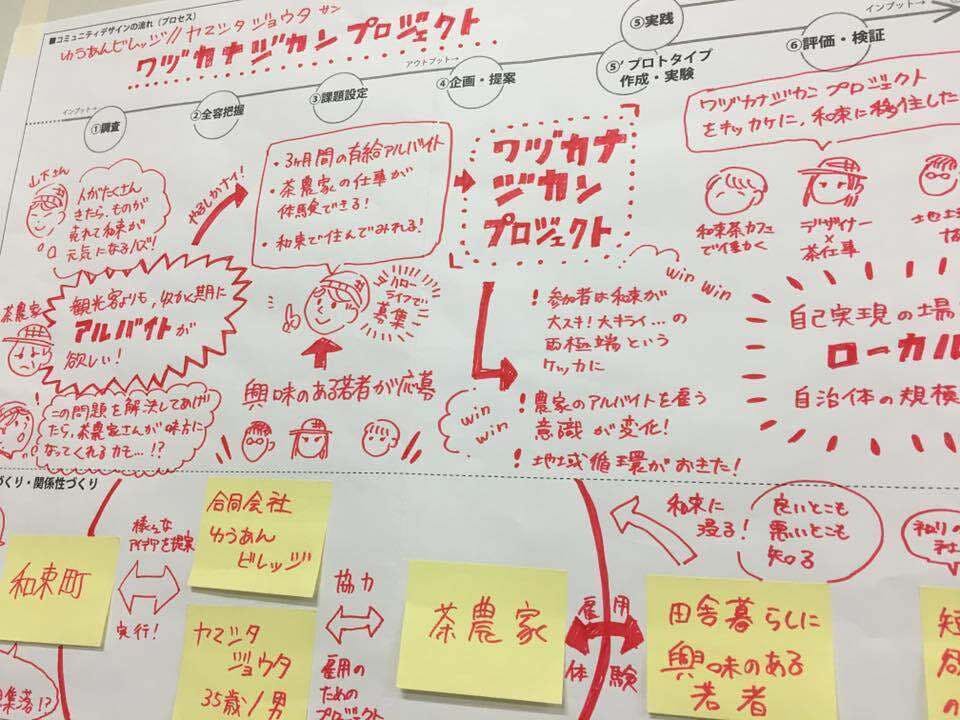 ■コミュニティデザインの流れ（プロセス）
ゆうあんビレッジ//ヤマシタジョウタサン
ワヅカナジカンプロジェクト
インプット→
①調査
②全容把握
③課題設定
アウトプット→
④企画・提案
⑤実践
⑤'プロトタイプ
作成・実験
インプット→
⑥評価・検証
山下さん
人がたくさん
きたら、ものが
売れて和束が
元気になるハズ!
やるしかナイ!
・3ヶ月間の有給アルバイト
・茶農家の仕事が
体験できる!
・和束で住んでみれる!
ワヅカナ
ジカン
プロジェクト
ワヅカナジカンプロジェクト
をキッカケに、和束に移住した
和束茶カフェ
で働く
デザイナー
×
茶仕事
茶農家
観光客よりも、収かく期に
アルバイトが
欲しい!
ハロー
ライフで
募集
興味のある若者が応募
この問題を解決してあげ
たら、茶農家さんが味方に
なってくれるカモ…!?
win
win
!参加者は和束が
大スキ!大キライ…の
両極端という
ケッカに
win
win
!農家のアルバイトを雇う
意識が変化!
!地域循環がおきた!
自己実現の場
ローカル
自治体の規模
づくり・関係性づくり
和束町
様々な
アイデアを提案
実行!
合同会社
ゆうあん
ビレッジ
ヤマシタ
ジョウタ
35歳/男
協力
雇用の
ための
プロジェクト
茶農家
雇用
体験
和束に
浸る!
良いとこも
悪いとこも
知る
田舎暮らしに
興味のある
若者